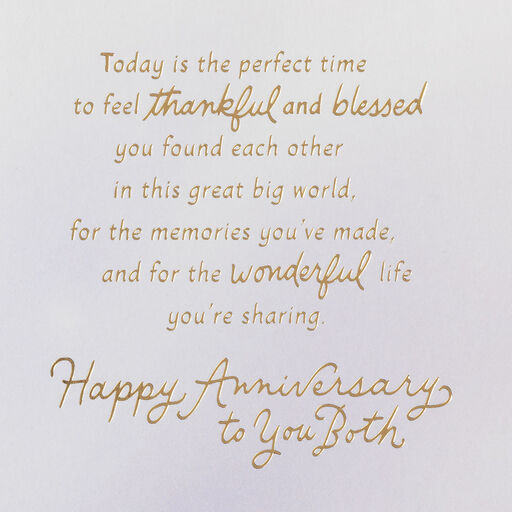 Today is the perfect time
to feel thankful and blessed
you found each other
in this great big world,
for the memories you've made,
and for the wonderful life
you're sharing.
Happy Anniversary
to You Both